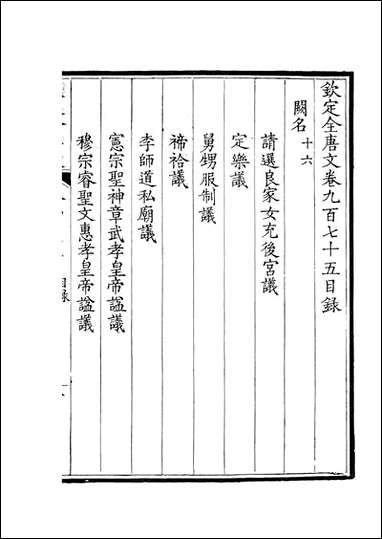 欽定全唐文卷九百七十五目錄
闕名十六
請選良家女充後宮議
定樂議
舅甥服制議
禘祫議
李師道私廟議
憲宗聖神章武孝皇帝諡議
穆宗睿聖文惠孝皇帝諡議
目錄